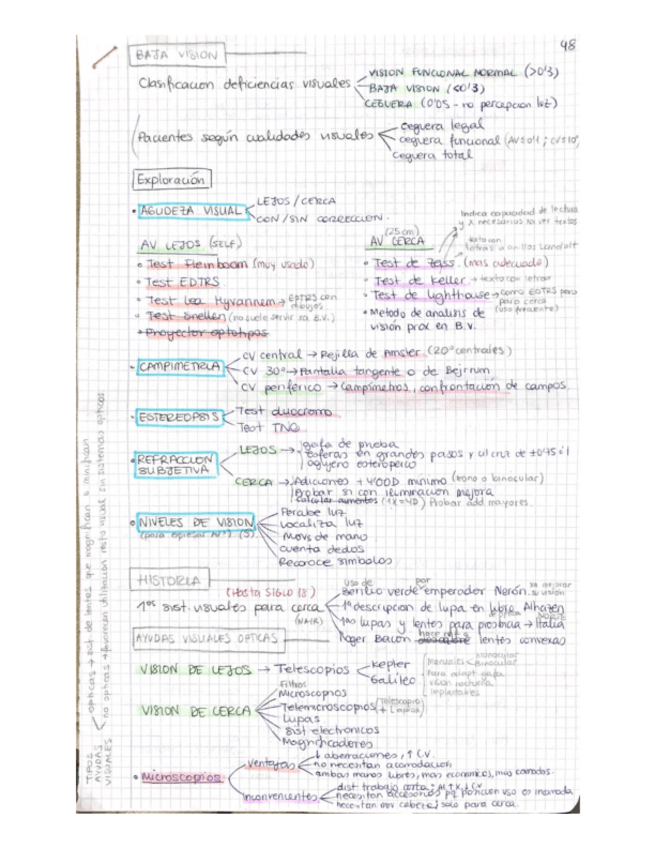 48
BAJA VISION
Clasificacion deficiencias visuales
VISION FUNCIONAL NORMAL (>0'3)
BAJA VISION (<0'3)
CEGUERA (0'05 - no percepcion luz)
Pacientes según cualidades visuales
ceguera legal
ceguera funcional
ceguera total
Exploración
• AGUDEZA VISUAL
LEJOS / CERCA
CON / SIN CORRECCION.
Indica capacidad de lectura
y x necesarios xa ver textos
AV LEJOS (SELF)
• Test Fleimboom (muy usado)
• Test EDTRS
• Test Lea Hyvarinnem → EDTRS con dibujos
• Test Snellen (no suele servir xa B.V.)
• Proyector optotipos
(25cm)
AV CERCA
texto con
letras o anillos Landolt
• Test de Zeiss (mas adecuado)
• Test de Keller → texto con letras
• Test de Lighthouse → como EDTRS pero para cerca
(uso frecuente)
• Metodo de analisis de
vision prox en B.V.
• CAMPIMETRIA
CV central → Rejilla de Amsler (20° centrales)
CV 30° → Pantalla tangente o de Bejrrum
CV periferico → Campimetros, confrontación de campos
• ESTEREOPSIS
Test duocromo
Test TNO
• REFRACCION
SUBJETIVA
LEJOS →
gafa de prueba
Esferas en grandes pasos y cil cruz de ±0'75 ó 1
agujero estenopeico
CERCA →
Adiciones + 4'00D minimo (mono o binocular)
Probar si con iluminacion mejora
Calcular aumentos (1X=4D) Probar add mayores.
• NIVELES DE VISION
Percibe luz
Localiza luz
Movs de mano
cuenta dedos
Reconoce simbolos
HISTORIA
(Hasta SIGLO 18)
1os sist. visuales para cerca
(NAIR)
uso de Berilio verde por emperador Nerón. xa mejorar su visión
1ª descripcion de lupa en libro Alhazen
1as lupas y lentes para presbicia → Italia
Roger Bacon lentes convexas
AYUDAS VISUALES OPTICAS
VISION DE LEJOS → Telescopios
Kepler
Galileo
Manuales
monocular
Binocular
Para adapt gafa
vision nocturna
implantables
VISION DE CERCA
Filtros
Microscopios
Telemicroscopios (Telescopio + Lupas)
Lupas
Sist electronicos
Magnificadores
• Microscopios
ventajas
↓ aberraciones, ↑ CV
no necesitan acomodacion
ambas manos libres, mas economicos, mas comodos.
inconvenientes
dist. trabajo corta: Al ↑X ↓ CV
necesitan accesorios pq posicion uso es incomoda
necesitan mov cabeza, solo para cerca.
TIPOS
AYUDAS
VISUALES
opticas → sist de lentes que magnifican o minifican
no opticas → favorecen utilitación resto visual sin sistemas opticos